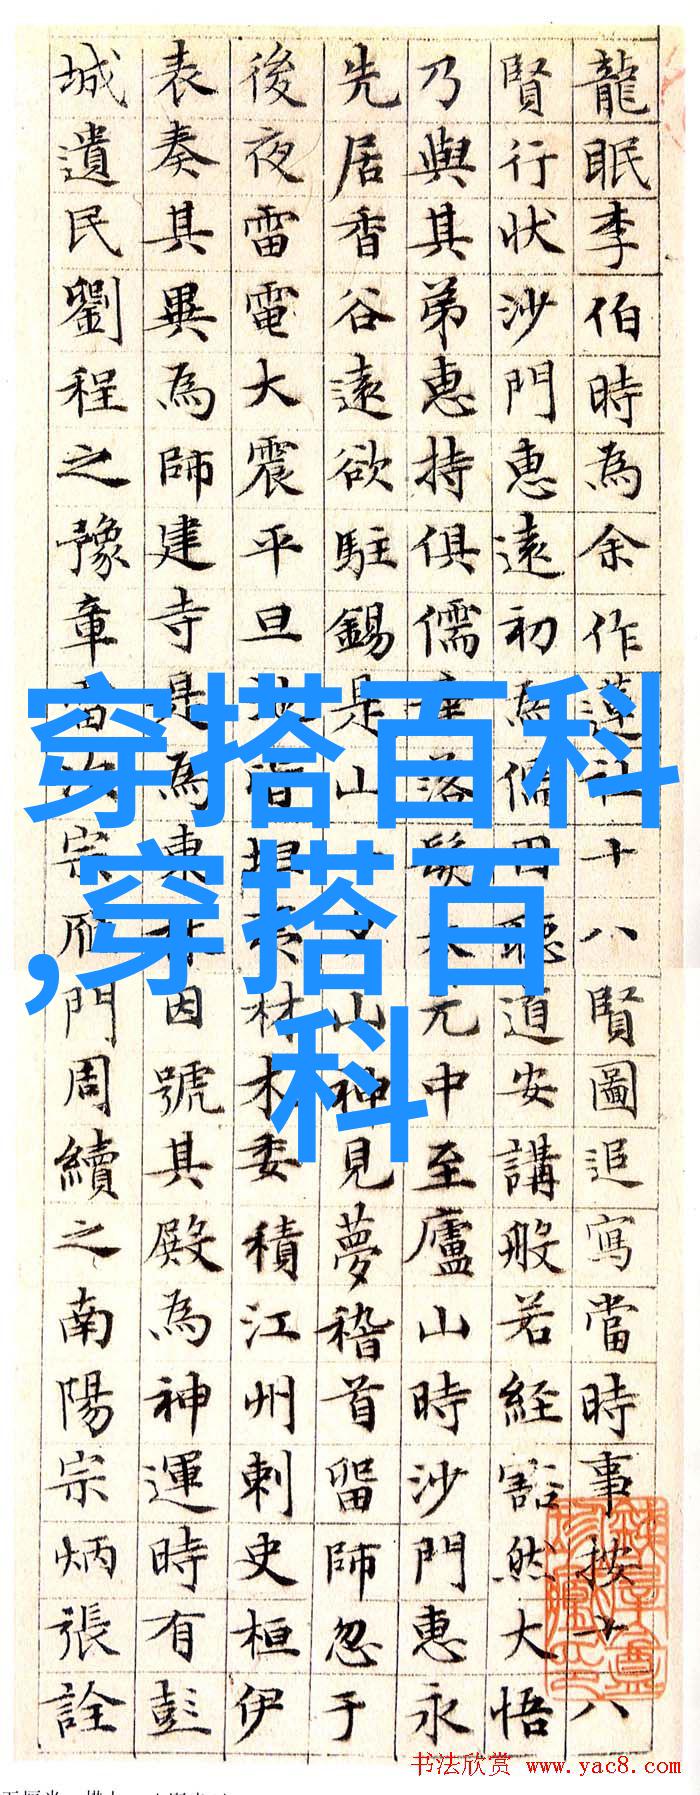 龍眠李伯時為余作蓮社十八賢圖追寫當時事按十八
賢行狀沙門惠遠初為儒因聽道安講般若經豁然大悟
乃與其弟惠持俱儒落髮太元中至廬山時沙門惠永
先居香谷遠欲駐錫是山一夕山神見夢稽首留師忽于
後夜雷電大震平旦地皆坦夷材木委積江州刺史桓伊
表奏其異為師建寺是為東林因號其殿為神運時有彭
城遺民劉程之豫章雷次宗雁門周續之南陽宗炳張詮
穿搭百科
,穿搭百
科
书法欣赏 www.yac8.com